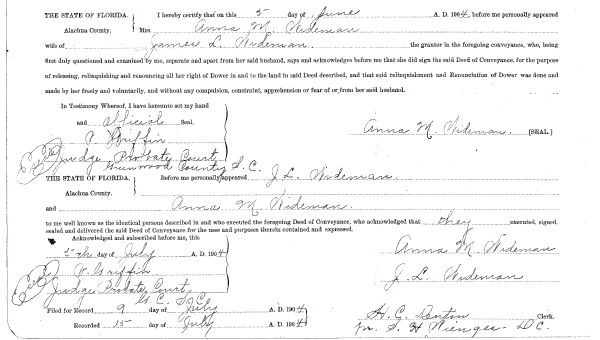 THE STATE OF FLORIDA, } I hereby certify that on this 5 day of June A. D. 1904, before me personally appeared
Alachua County. } Mrs. Anna M. Wideman
wife of James L. Wideman. the grantor in the foregoing conveyance, who, being
first duly questioned and examined by me, separate and apart from her said husband, says and acknowledges before me that she did sign the said Deed of Conveyance, for the purpose
of releasing, relinquishing and renouncing all her right of Dower in and to the land in said Deed described, and that said relinquishment and Renunciation of Dower was done and
made by her freely and voluntarily, and without any compulsion, constraint, apprehension or fear of or from her said husband.
In Testimony Whereof, I have hereunto set my hand
and official Seal.
Griffin Anna M. Wideman. [SEAL.]
Judge Probate Court
Greenwood County S. C.
THE STATE OF FLORIDA, } Before me personally appeared J. L. Wideman.
Alachua County.
and Anna M. Wideman.
to me well known as the identical persons described in and who executed the foregoing Deed of Conveyance, who acknowledged that they executed, signed,
sealed and delivered the said Deed of Conveyance for the uses and purposes therein contained and expressed.
Acknowledged and subscribed before me, this
5th day of July A. D. 1904 Anna M. Wideman
Griffin J. L. Wideman
Judge Probate Court
G. C. S. C.
Filed for Record 9 day of July A. D. 1904 H. C. Denton Clerk.
Recorded 15 day of July A. D. 1904 pr. S. H. Wienges D. C.